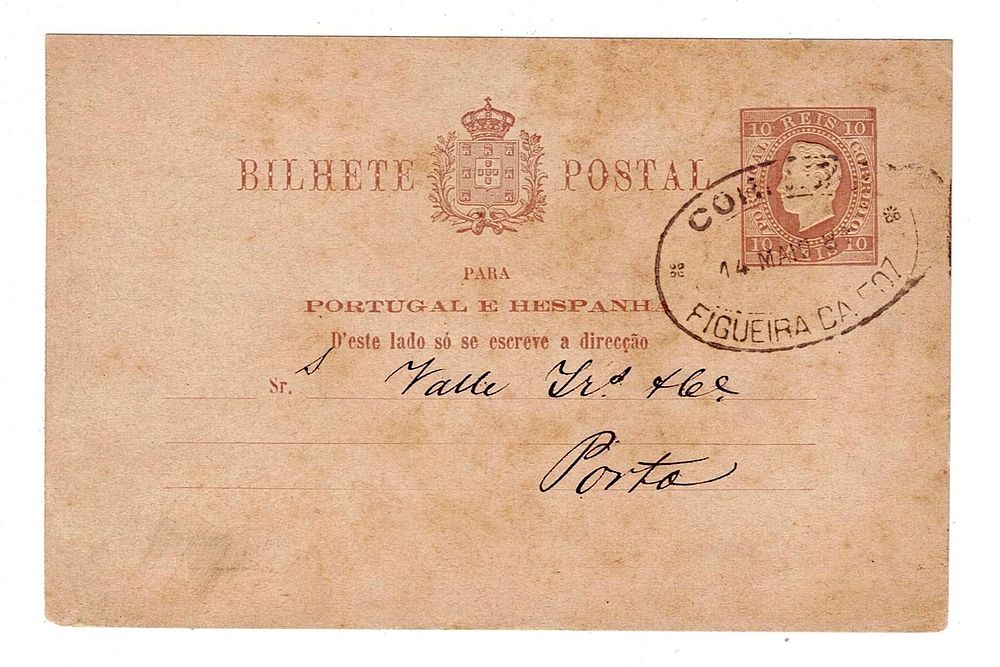 BILHETE POSTAL
10 REIS 10
PORTUGAL
CORREIO
10 REIS 10
14 MAIO
FIGUEIRA DA FOZ
PARA
PORTUGAL E HESPANHA
D'este lado só se escreve a direcção
Sr. s Valle Irs & Ca.
Porto